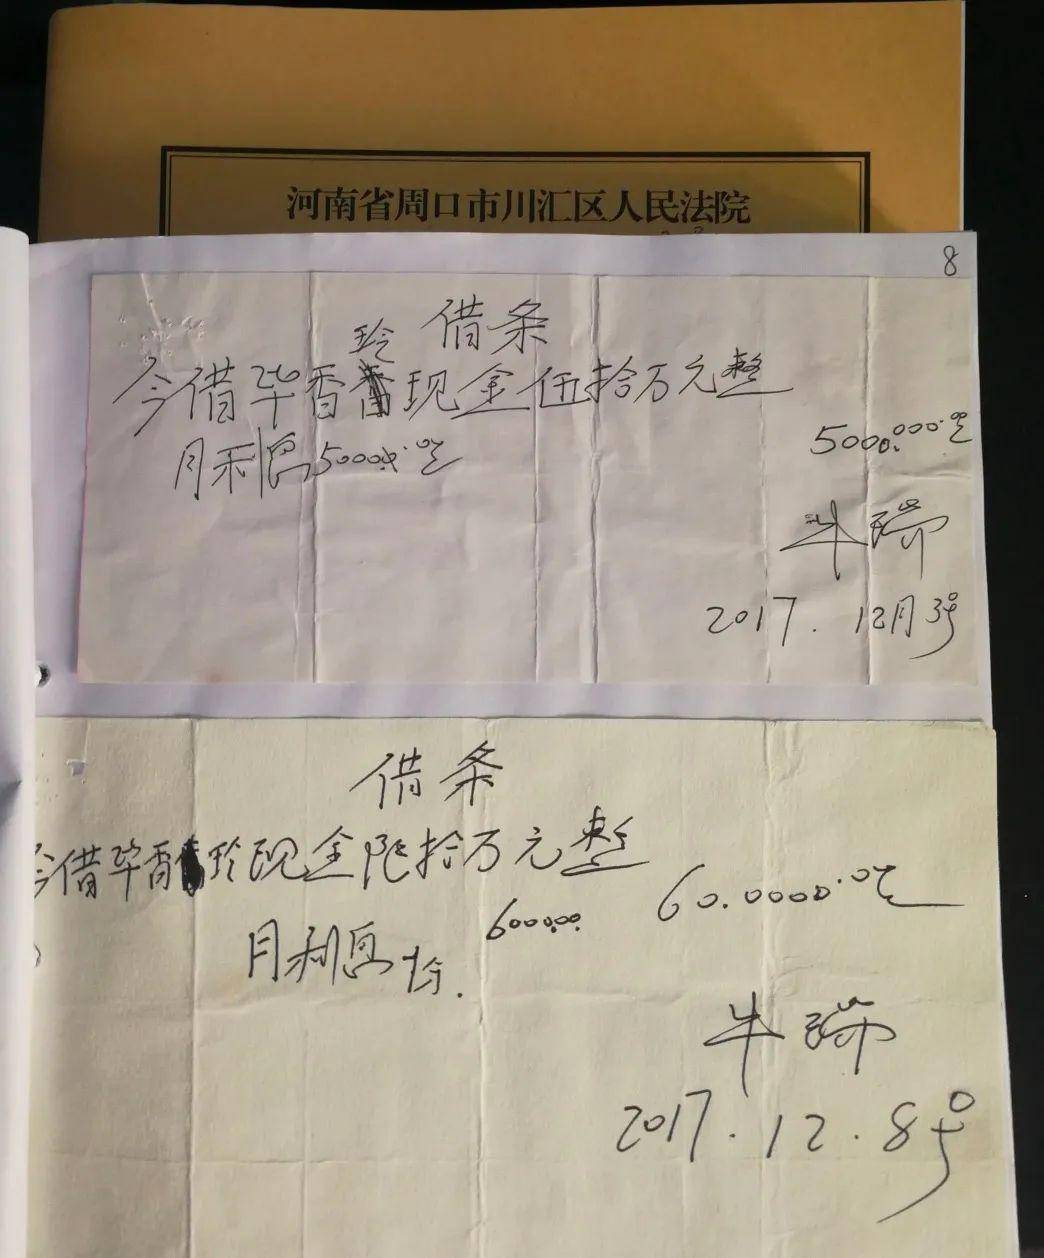 河南省周口市川汇区人民法院
8
借条
玲
今借毕香现金伍拾万元整
500.000.00元
月利息50000.00元
牛瑞
2017.12月3号
借条
今借毕香玲现金陆拾万元整
60.0000.00元
60000.00
月利息十分.
牛瑞
2017.12.8号